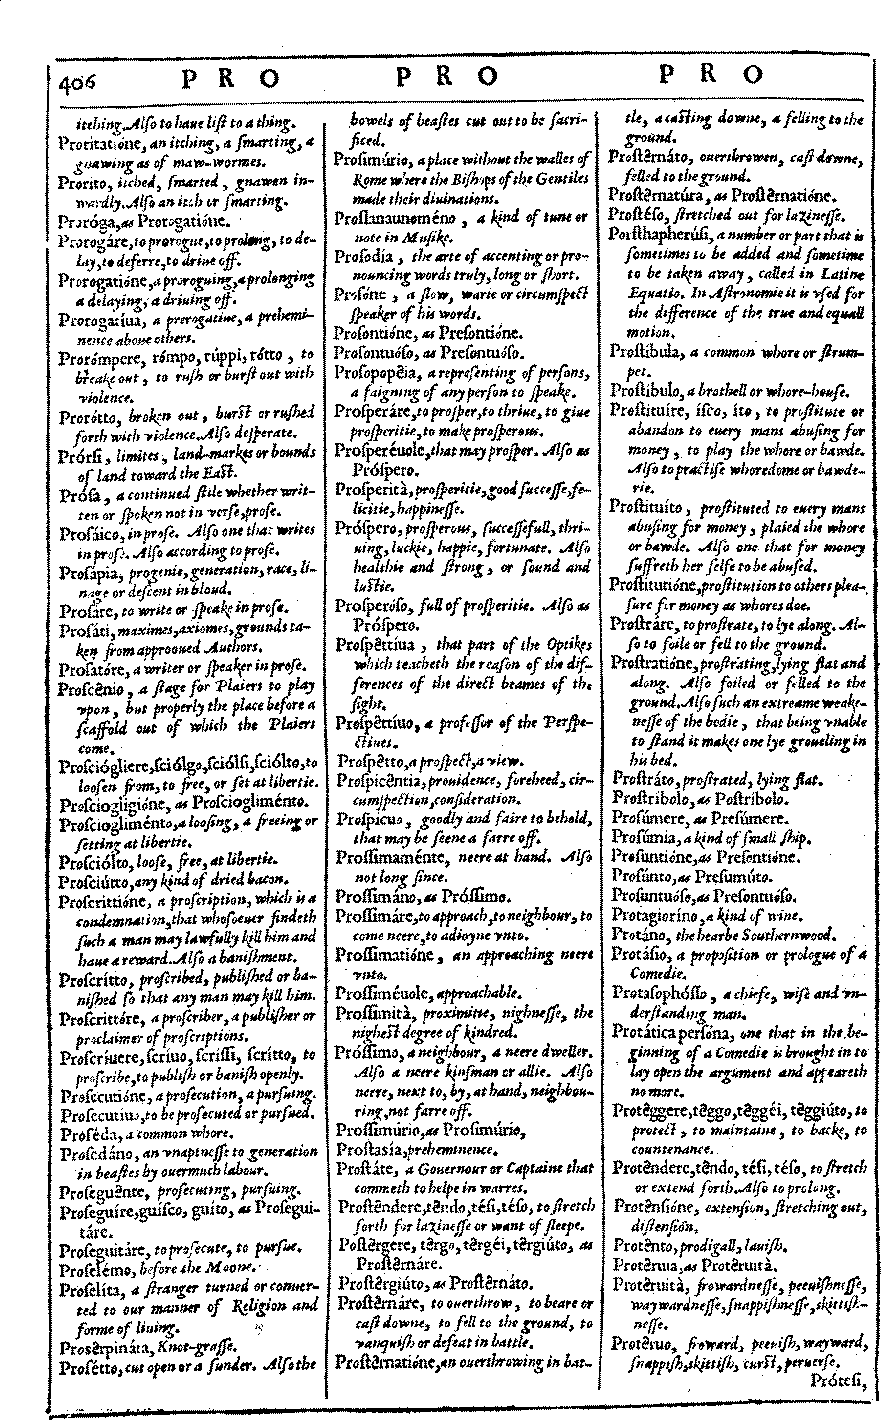 406 P R O P R O P R O
itching. Also to haue list to a thing.
Proritatióne, an itching, a smarting, a
gnawing as of maw-wormes.
Prorito, itched, smarted, gnawen in-
wardly. Also an itch or smarting.
Proróga, as Prorogatióne.
Prorogáre, to prorogue, to prolong, to de-
lay, to deferre, to driue off.
Prorogatióne, a proroguing, a prolonging
a delaying, a driuing off.
Prorogatíua, a prerogatiue, a prehemi-
nence aboue others.
Prorómpere, rómpo, rúppi, rótto, to
breake out, to rush or burst out with
violence.
Prorótto, broken out, burst or rushed
forth with violence. Also desperate.
Prórsi, limites, land-markes or bounds
of land toward the East.
Prósa, a continued stile whether writ-
ten or spoken not in verse, prose.
Prosáico, in prose. Also one that writes
in prose. Also according to prose.
Prosápia, progenie, generation, race, li-
nage or descent in bloud.
Prosáre, to write or speake in prose.
Prosáti, maximes, axiomes, grounds ta-
ken from approoued Authors.
Prosatóre, a writer or speaker in prose.
Proscênio, a stage for Plaiers to play
vpon, but properly the place before a
scaffold out of which the Plaiers
come.
Prosciógliere, sciólgo, sciólsi, sciólto, to
loosen from, to free, or set at libertie.
Prosciogligióne, as Prosciogliménto.
Prosciogliménto, a loosing, a freeing or
setting at libertie.
Prosciólto, loose, free, at libertie.
Prosciútto, any kind of dried bacon.
Proscrittióne, a proscription, which is a
condemnation, that whosoeuer findeth
such a man may lawfully kill him and
haue a reward. Also a banishment.
Proscrítto, proscribed, published or ba-
nished so that any man may kill him.
Proscrittóre, a proscriber, a publisher or
proclaimer of proscriptions.
Proscríuere, scríuo, scríssi, scrítto, to
proscribe, to publish or banish openly.
Prosecutióne, a prosecution, a pursuing.
Prosecutiuo, to be prosecuted or pursued.
Proséda, a common whore.
Prosedáno, an vnaptnesse to generation
in beastes by ouermuch labour.
Proseguênte, prosecuting, pursuing.
Proseguíre, guísco, guíto, as Prosegui-
táre.
Proseguitáre, to prosecute, to pursue.
Proselémo, before the Moone.
Proselíta, a stranger turned or conuer-
ted to our manner of Religion and
forme of liuing.
Prosêrpináta, Knot-grasse.
Prosétto, cut open or a sunder. Also the
bowels of beastes cut out to be sacri-
ficed.
Prosimúrio, a place without the walles of
Rome where the Bishops of the Gentiles
made their diuinations.
Proslanaunoméno, a kind of tune or
note in Musike.
Prosodía, the arte of accenting or pro-
nouncing words truly, long or short.
Prosóne, a slow, warie or circumspect
speaker of his words.
Prosontióne, as Presontióne.
Prosontuóso, as Presontuóso.
Prosopopêia, a representing of persons,
a faigning of any person to speake.
Prosperáre, to prosper, to thriue, to giue
prosperitie, to make prosperous.
Prosperéuole, that may prosper. Also as
Próspero.
Prosperità, prosperitie, good successe, fe-
licitie, happinesse.
Próspero, prosperous, successefull, thri-
uing, luckie, happie, fortunate. Also
healthie and strong, or sound and
lustie.
Prosperóso, full of prosperitie. Also as
Próspero.
Prospêttíua, that part of the Optikes
which teacheth the reason of the dif-
ferences of the direct beames of the
sight.
Prospêttíuo, a professor of the Perspe-
ctiues.
Prospêtto, a prospect, a view.
Prospicêntia, prouidence, foreheed, cir-
cumspection, consideration.
Prospícuo, goodly and faire to behold,
that may be seene a farre off.
Prossimaménte, neere at hand. Also
not long since.
Prossimáno, as Próssimo.
Prossimáre, to approach, to neighbour, to
come neere, to adioyne vnto.
Prossimatióne, an approaching neere
vnto.
Prossiméuole, approachable.
Prossimità, proximitie, nighnesse, the
nighest degree of kindred.
Próssimo, a neighbour, a neere dweller.
Also a neere kinsman or allie. Also
neere, next to, by, at hand, neighbou-
ring, not farre off.
Prossimúrio, as Prosimúrio,
Prostasía, preheminence.
Prostáte, a Gouernour or Captaine that
commeth to helpe in warres.
Prostêndere, têndo, tési, téso, to stretch
forth for lazinesse or want of sleepe.
Postêrgere, têrgo, têrgéi, têrgiúto, as
Prostêrnáre.
Prostêrgiúto, as Prostêrnáto.
Prostêrnáre, to ouerthrow, to beare or
cast downe, to fell to the ground, to
vanquish or defeat in battle.
Prostêrnatióne, an ouerthrowing in bat-
tle, a casting downe, a felling to the
ground.
Prostêrnáto, ouerthrowen, cast downe,
felled to the ground.
Prostêrnatúra, as Prostêrnatióne.
Prostéso, stretched out for lazinesse.
Porsthapherúsi, a number or part that is
sometimes to be added and sometime
to be taken away, called in Latine
Equatio. In Astronomie it is vsed for
the difference of the true and equall
motion.
Prostíbula, a common whore or strum-
pet.
Prostíbulo, a brothell or whore-house.
Prostituíre, ísco, íto, to prostitute or
abandon to euery mans abusing for
money, to play the whore or bawde.
Also to practise whoredome or bawde-
rie.
Prostituíto, prostituted to euery mans
abusing for money, plaied the whore
or bawde. Also one that for money
suffreth her selfe to be abused.
Prostitutióne, prostitution to others plea-
sure for money as whores doe.
Prostráre, to prostrate, to lye along. Al-
so to foile or fell to the ground.
Prostratióne, prostrating, lying flat and
along. Also foiled or felled to the
ground. Also such an extreame weake-
nesse of the bodie, that being vnable
to stand it makes one lye groueling in
his bed.
Prostráto, prostrated, lying flat.
Prostribolo, as Postribolo.
Prosúmere, as Presúmere.
Prosúmia, a kind of small ship.
Prosuntióne, as Presentióne.
Prosúnto, as Presumúto.
Prosuntuóso, as Presontuóso.
Protagioríno, a kind of wine.
Protáno, the hearbe Southernwood.
Protásio, a proposition or prologue of a
Comedie.
Protasophósso, a chiefe, wise and vn-
derstanding man.
Protática persóna, one that in the be-
ginning of a Comedie is brought in to
lay open the argument and appeareth
no more.
Protêggere, têggo, têggéi, têggiúto, to
protect, to maintaine, to backe, to
countenance.
Protêndere, têndo, tési, téso, to stretch
or extend forth. Also to prolong.
Protênsióne, extension, stretching out,
distension.
Protênto, prodigall, lauish.
Protêruia, as Protêruità.
Protêruità, frowardnesse, peeuishnesse,
waywardnesse, snappishnesse, skittish-
nesse.
Protêruo, froward, peeuish, wayward,
snappish, skittish, curst, peruerse.
Prótesi,